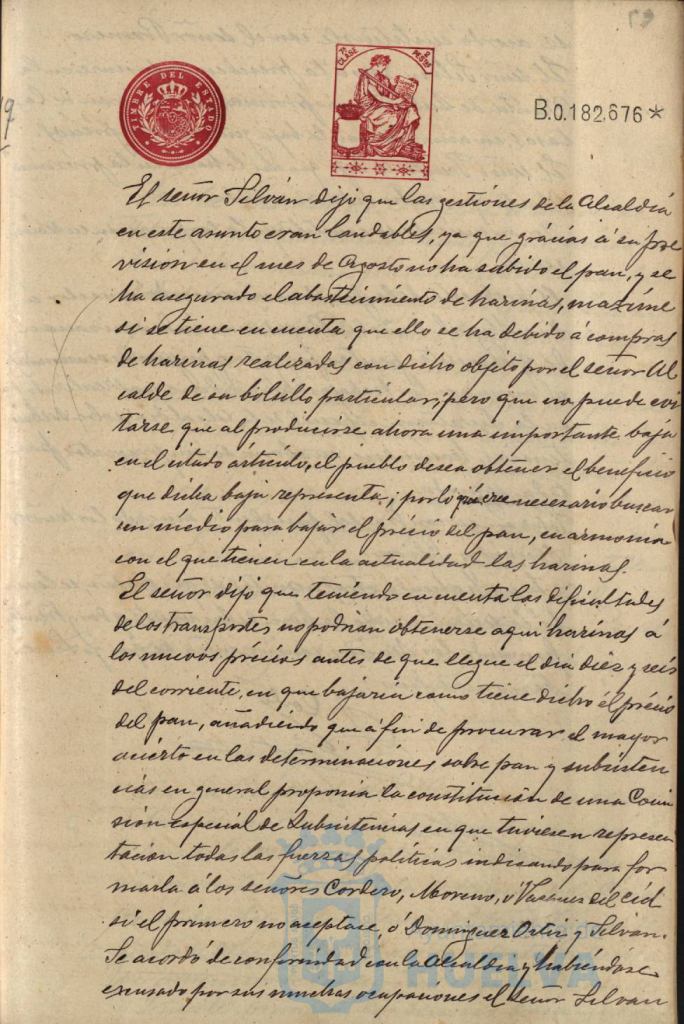 59
TIMBRE DEL ESTADO
7ª CLASE
2 PESETAS
B.0.182,676*
El señor Silván dijo que las gestiones de la Alcaldía
en este asunto eran laudables, ya que grácias á su pre
vision en el mes de Agosto no ha subido el pan, y se
ha asegurado el abastecimiento de harinas, maxime
si se tiene en cuenta que ello se ha debido á compras
de harinas realizadas con dicho objeto por el señor Al
calde de su bolsillo particular; pero que no puede evi
tarse que al producirse ahora una importante baja
en el citado articulo, el pueblo desea obtener el beneficio
que dicha baja representa; por lo que cree necesario buscar
un medio para bajar el précio del pan, en armonía
con el que tienen en la actualidad las harinas.
El señor dijo que teniendo en cuenta las dificultades
de los transportes no podrian obtenerse aqui harinas á
los nuevos précios antes de que llegue el dia diez y seis
del corriente, en que bajaria como tiene dicho el précio
del pan, añadiendo que á fin de procurar el mayor
acierto en las determinaciones sobre pan y subsisten
cias en general proponia la constitución de una Comi
sión especial de Subsistencias en que tuviesen represen
tacion todas las fuerzas politicas indicando para for
marla á los señores Cordero, Moreno, ó Vazquez del Cid
si el primero no aceptase, ó Dominguez Ortiz y Silván.
Se acordó de conformidad con la Alcaldia y habiéndose
excusado por sus muchas ocupaciones el señor Silvan
HUELVA